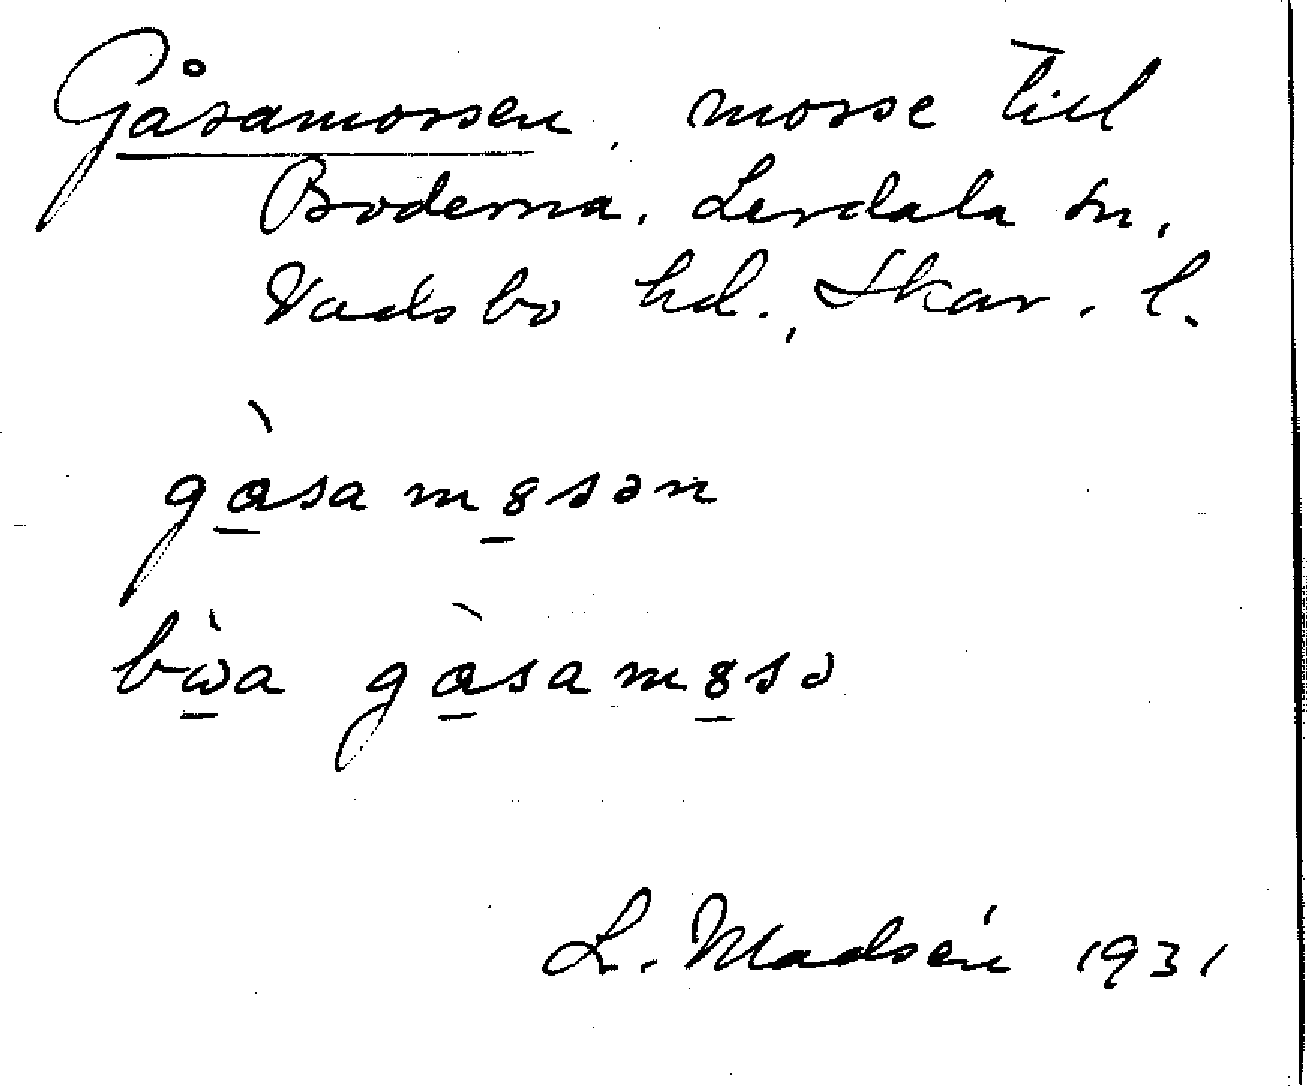 Gåsamossen, mosse till
Boderna. Lerdala sn,
Vadsbo hd., Skar. l.
gàsamɞsən
bὼa gàsamɞsə
L. Madsén 1931